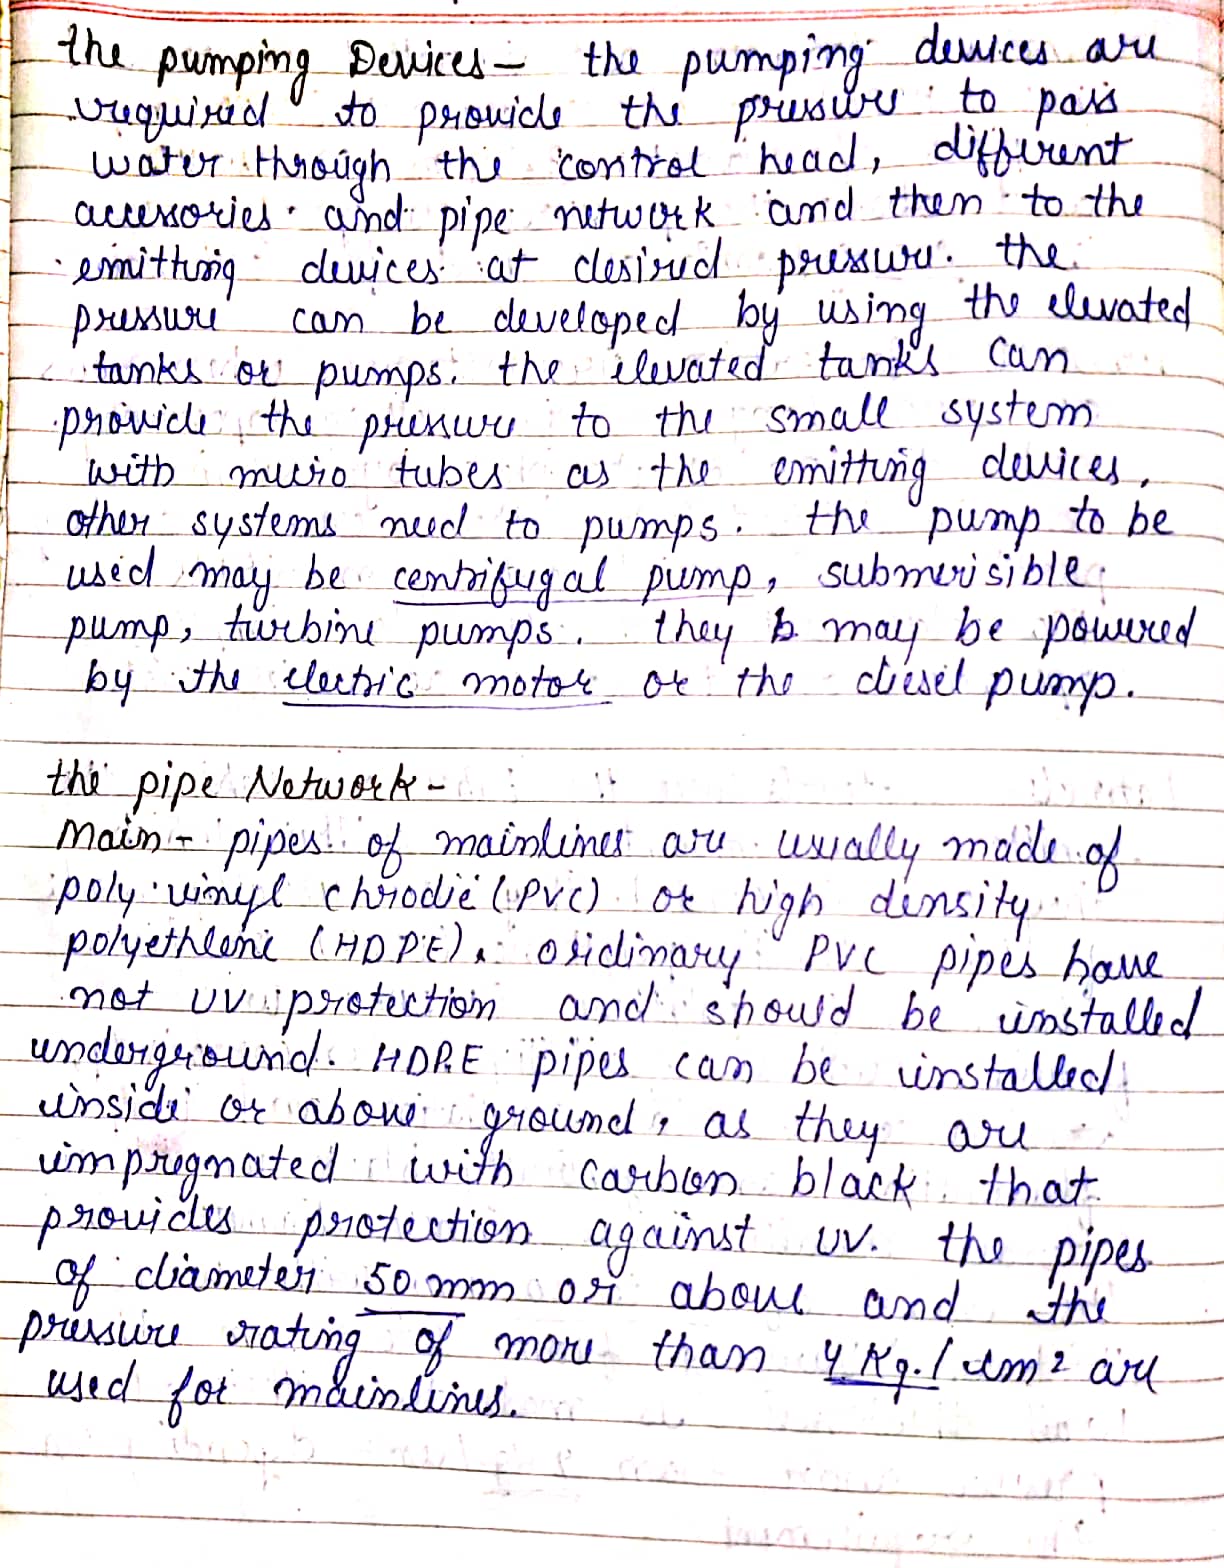 the pumping Devices - the pumping devices are
required to provide the pressure to pass
water through the control head, different
accessories and pipe network and then to the
emitting devices at desired pressure. the
pressure can be developed by using the elevated
tanks or pumps. the elevated tanks can
provide the pressure to the small system
with micro tubes as the emitting devices,
other systems need to pumps. the pump to be
used may be centrifugal pump, submerisible
pump, turbine pumps. they may be powered
by the electric motor or the diesel pump.
the pipe Network -
Main - pipes of mainlines are usually made of
poly vinyl chrodie (PVC) or high density
polyethlene (HDPE). oridinary PVC pipes have
not UV protection and should be installed
underground. HDPE pipes can be installed
inside or above ground, as they are
impregnated with carbon black that
provides protection against UV. the pipes
of diameter 50 mm or above and the
pressure rating of more than 4 Kg./cm² are
used for mainlines.